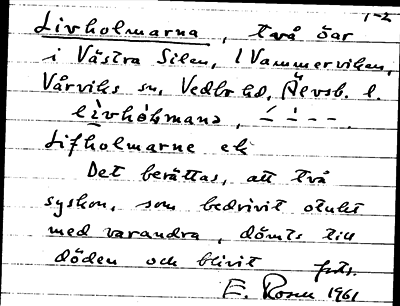 1-2
Livholmarna, två öar
i Västra Silen, i Vammerviken,
Vårviks sn, Vedbo hd, Älvsb. l.
Lifholmarne ek
Det berättas, att två
syskon, som bedrivit otukt
med varandra, dömts till
döden och blivit forts.
E. Rosen 1961